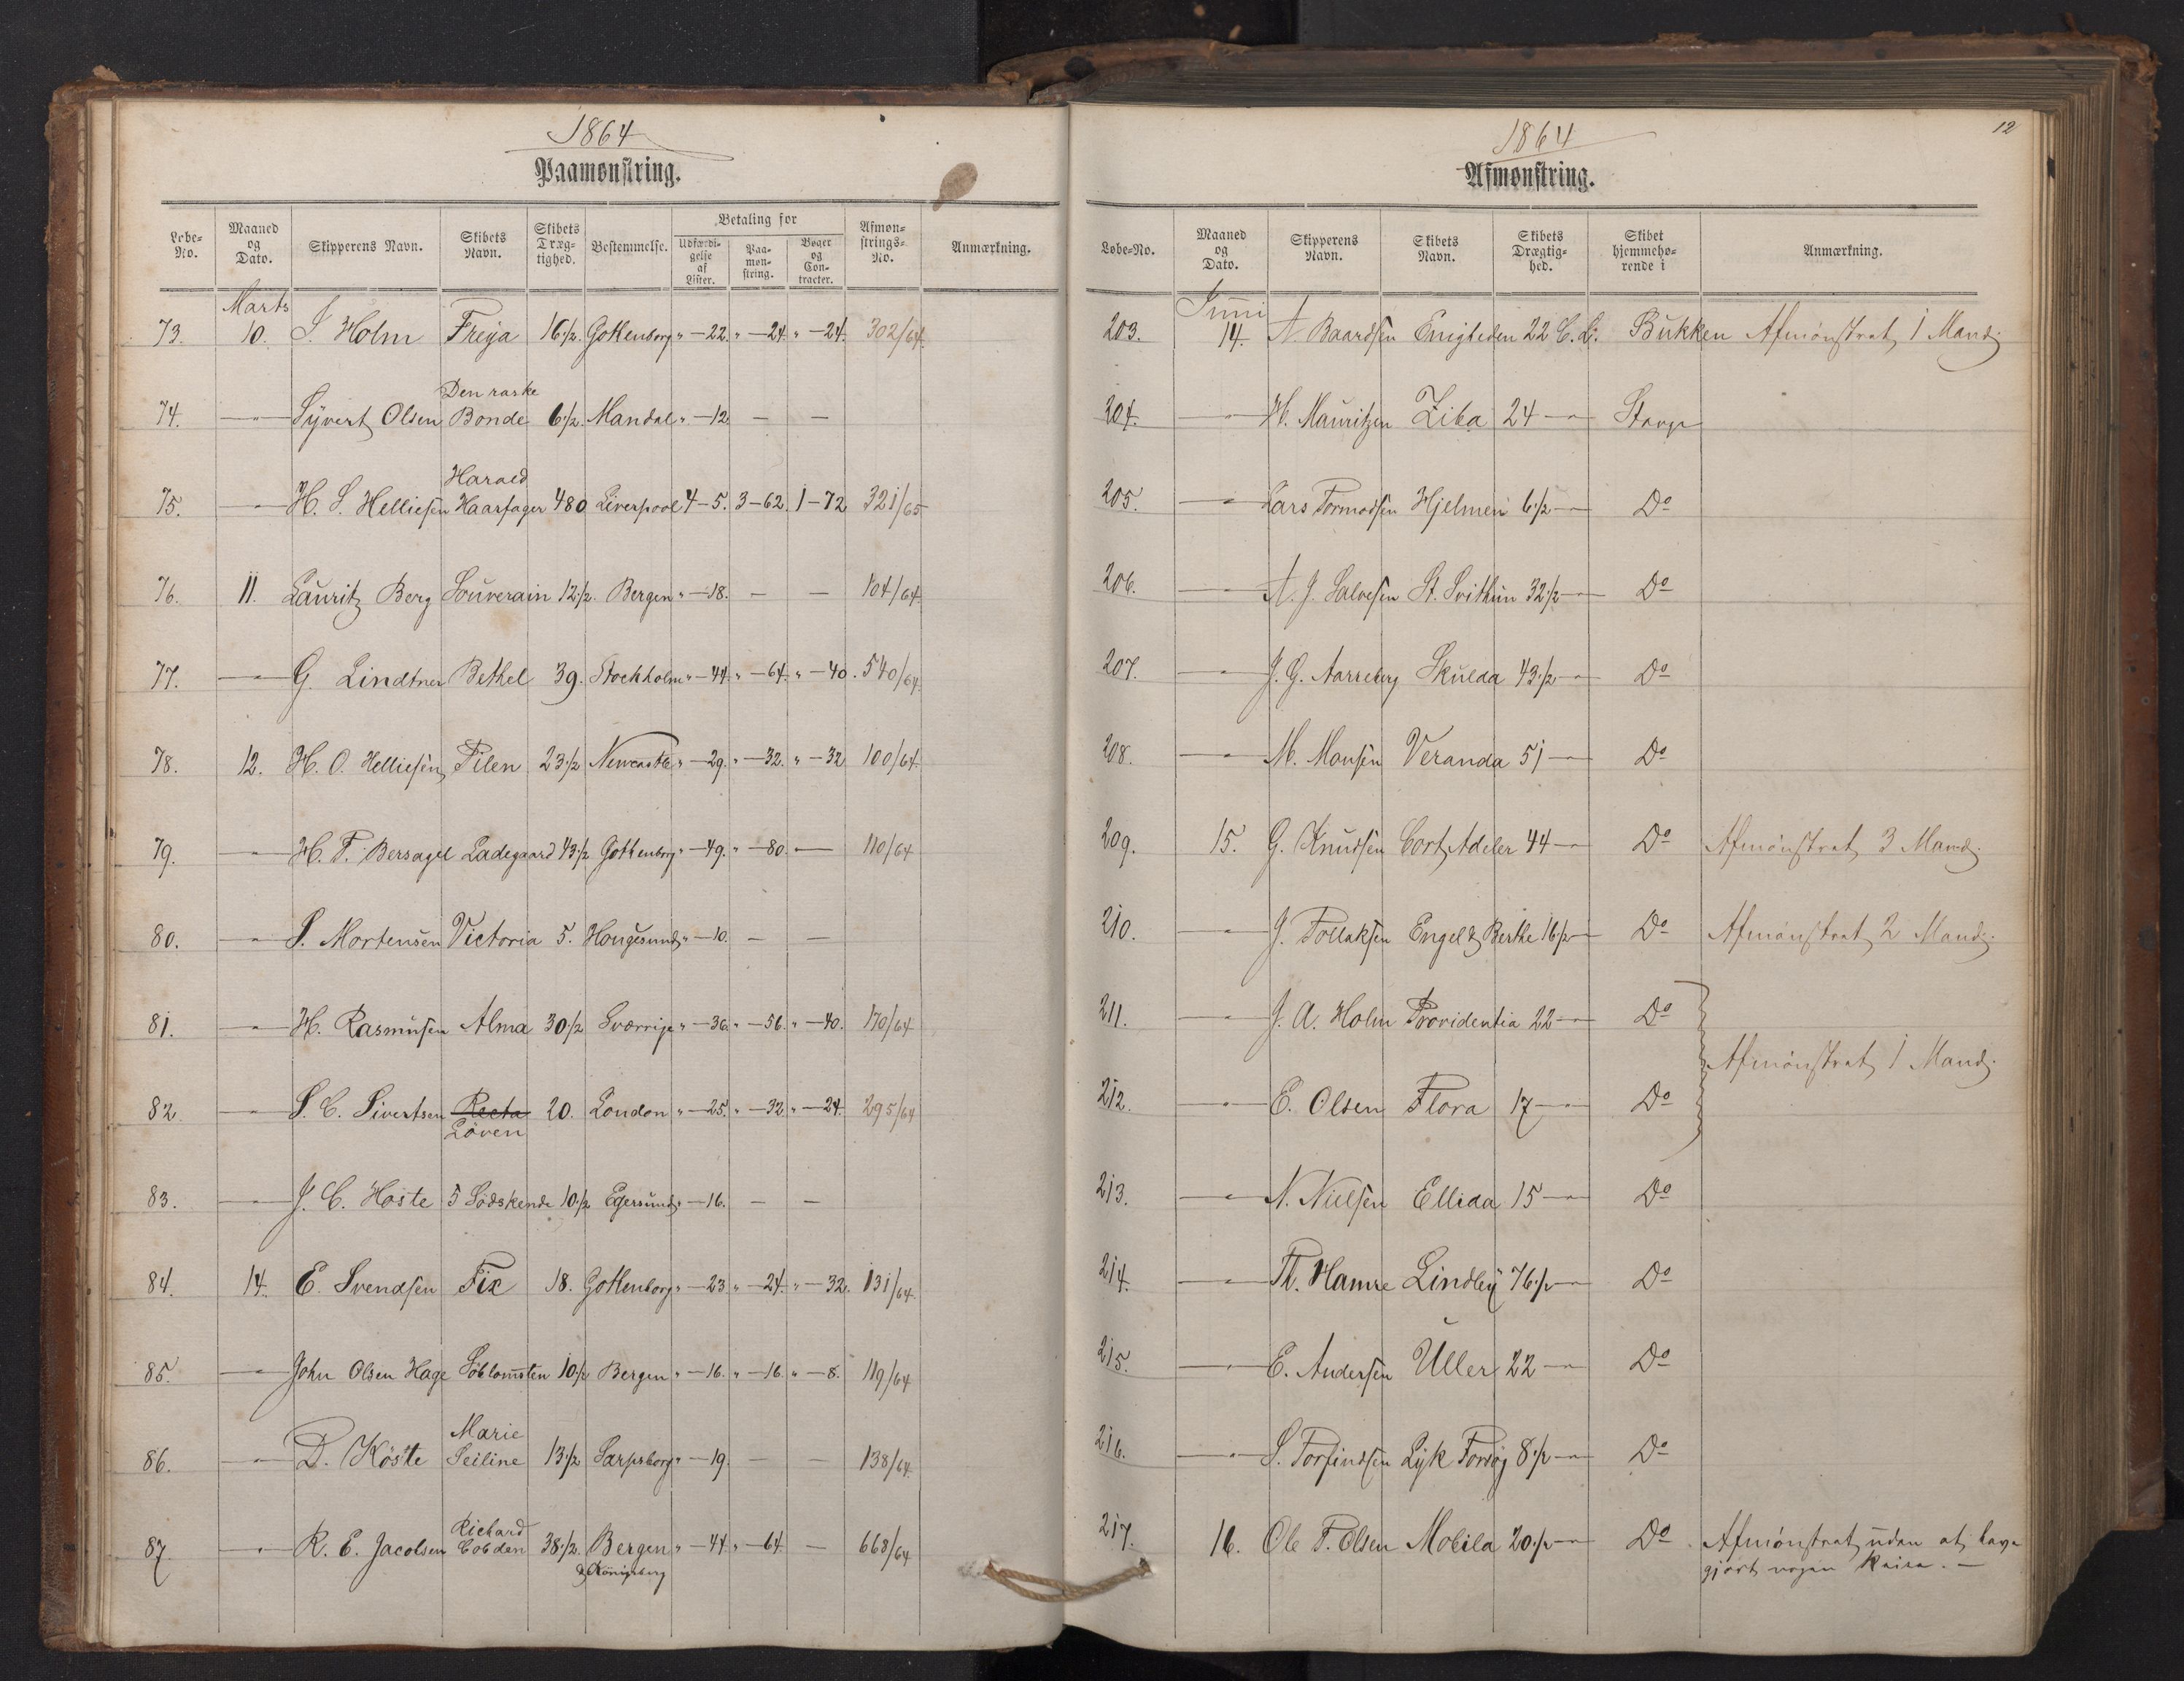 1864
Paamønstring.
Løbe-No. Maaned og Dato. Skipperens Navn. Skibets Navn. Skibets Dræg-tighed. Bestemmelse. Betaling for Udfærdi-gelse af Lister. Paa-møn-string. Bøger og Con-tracter. Afmøn-strings-No. Anmærkning.
Marts
73. 10. J. Holm Freya 16 1/2. Gottenborg " - 22. " - 24. " - 24. 302/64.
74. - " - Syvert Olsen Den raske Bonde 6 1/2. Mandal " - 12. - -
75. - " - H. S. Helliesen Harald Haarfager 480 Liverpool 4 - 5. 3 - 62. 1 - 72 321/65
76. 11. Lauritz Berg Souverain 12 1/2. Bergen " - 18. - - 104/64.
77. - " - G. Lindtner Bethel 39. Stockholm " - 44. " - 64. " - 40. 540/64.
78. 12. H. O. Helliesen Pilen 23 1/2 Newcastle " - 29. " - 32. " - 32 100/64.
79. - " - H. T. Bersagel Ladegaard 43 1/2 Gottenborg " - 49. " - 80. - 110/64
80. - " - S. Mortensen Victoria 5. Hougesund " - 10. - -
81. - " - H. Rasmusen Alma 30 1/2 Sverrige " - 36. " - 56. " - 40. 170/64
82. - " - S. C. Sivertsen Recta Löven 20. London " - 25. " - 32 " - 24. 295/64
83. - " - J. C. Hoste 5 Södskende 10 1/2 Egersund " - 16. - -
84. 14. E. Svendsen Fix 18. Gottenborg " - 23 " - 24. " - 32. 131/64.
85. - " - John Olsen Hage Söblomsten 10 1/2 Bergen " - 16. " - 16. " - 8. 119/64
86. - " - D. Köste Marie Seiline 13 1/2 Sarpsborg " - 19. - - 138/64
87. - " - R. E. Jacobsen Richard Cobden 38 1/2. Bergen & Königsberg " - 44. " - 64. - 668/64
1864
12
Afmønstring.
Løbe-No. Maaned og Dato. Skipperens Navn. Skibets Navn. Skibets Drægtig-hed. Skibet hjemmehø-rende i Anmærkning.
Juni
203. 14. N. Baardsen Enigheden 22 C.L. Bukken Afmönstret 1 Mand.
204. - " - H. Mauritzen Ziba 24 - " - Stavgr
205. - " - Lars Tormodsen Hjelmen 6 1/2 - " - Do
206. - " - A. J. Salvesen St. Svithun 32 1/2 - " - Do
207. - " - J. G. Aarreberg Skulda 43 1/2 - " - Do
208. - " - M. Monsen Veranda 51 - " - Do
209. 15. G. Knudsen Cort Adeler 44 - " - Do Afmönstret 3 Mand.
210. - " - J. Tollaksen Engel & Berthe 16 1/2 - " - Do Afmönstret 2 Mand.
211. - " - J. A. Holm Providentia 22 - " - Do
Afmönstret 1 Mand.
212. - " - E. Olsen Flora 17 - " - Do
213. - " - N. Nielsen Ellida 15 - " - Do
214. - " - Th. Hamre Lindley 76 1/2 - " - Do
215. - " - E. Andersen Uller 22 - " - Do
216. - " - S. Torfindsen Lyk Forsög 8 1/2 - " - Do
217. 16. Ole T. Olsen Mobila 20 1/2 - " - Do. Afmönstret uden at have
gjort nogen Reise. -